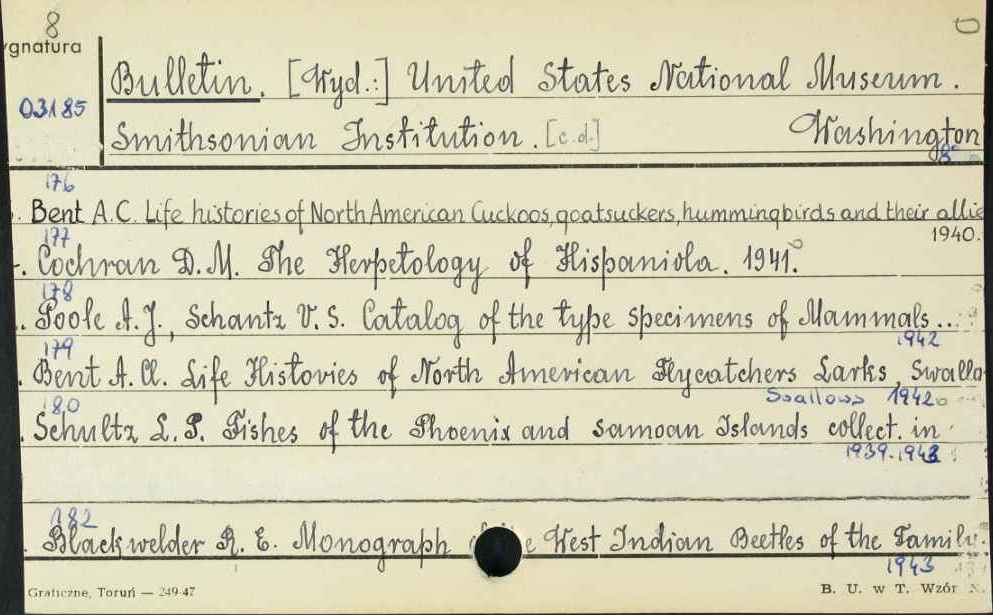 8
ygnatura
Bulletin. [Wyd.:] United States National Museum.
03185
Smithsonian Institution. [c.d.] Washington
8°
176
Bent A.C. Life histories of North American Cuckoos, goatsuckers, hummingbirds and their allie
1940.
177
Cochran D.M. The Herpetology of Hispaniola. 1941.
178
Poole A.J., Schantz V.S. Catalog of the type specimens of Mammals...
1942
179
Bent A.C. Life Histories of North American Flycatchers Larks, Swallo
Swallows 1942
180
Schultz L.P. Fishes of the Phoenix and Samoan Islands collect. in
1939.1943
182
Blackwelder R.E. Monograph e West Indian Beetles of the Family
1943
Graficzne, Toruń — 249-47 B. U. w T. Wzór